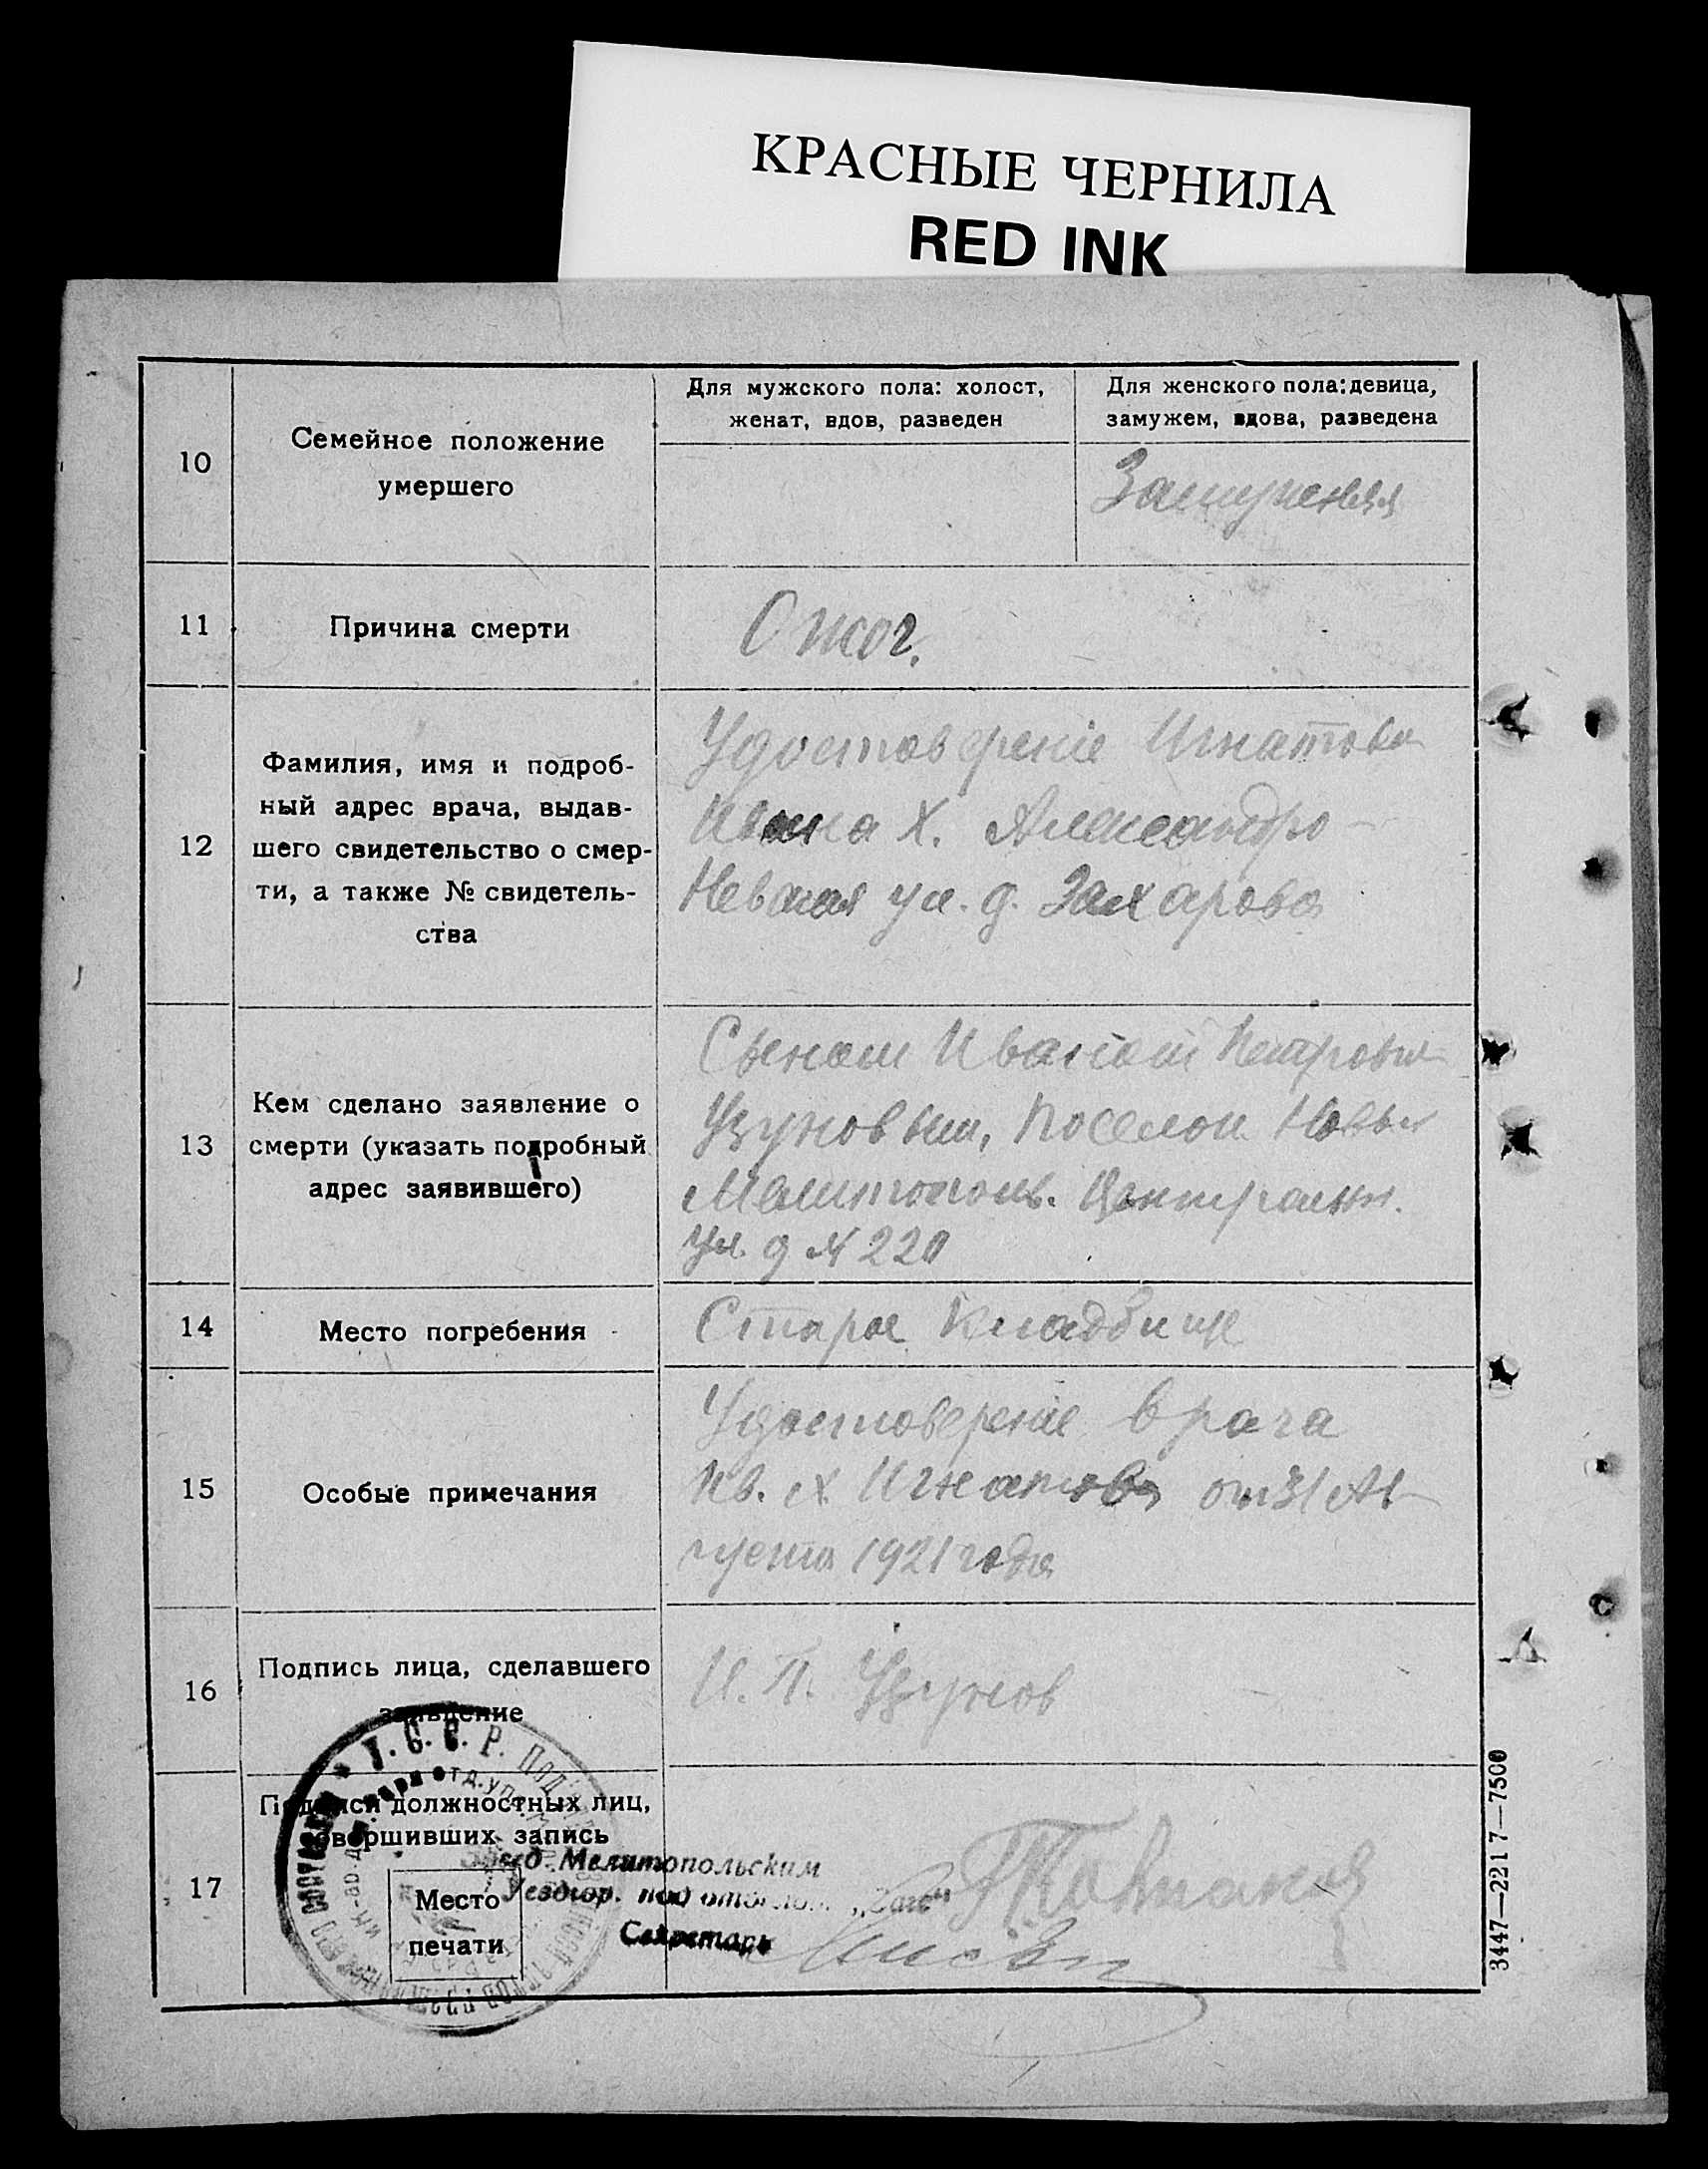 КРАСНЫЕ ЧЕРНИЛА
RED INK
10
Семейное положение
умершего
Для мужского пола: холост,
женат, вдов, разведен
Для женского пола: девица,
замужем, вдова, разведена
Замужняя
11
Причина смерти
Ожог.
12
Фамилия, имя и подроб-
ный адрес врача, выдав-
шего свидетельство о смер-
ти, а также № свидетель-
ства
Удостоверенie Игнатова
Ивана Х. Александро-
Невская ул. д. Захарова
13
Кем сделано заявление о
смерти (указать подробный
адрес заявившего)
Сыном Иваном Петровым
Узуновым, Поселок Новый
Мелитополь. Центральн.
ул. д № 220
14
Место погребения
Старое Кладбище
15
Особые примечания
Удостоверенie врача
Ив. Х. Игнатова от 31 Ав-
густа 1921 года
16
Подпись лица, сделавшего
заявление
И. П. Узунов
17
Подписи должностных лиц,
совершивших запись
Место
печати
У. С. С. Р.
Завед. Мелитопольским
Уездгор. под отделом „Загс“
Секретарь
3447—2217—7500